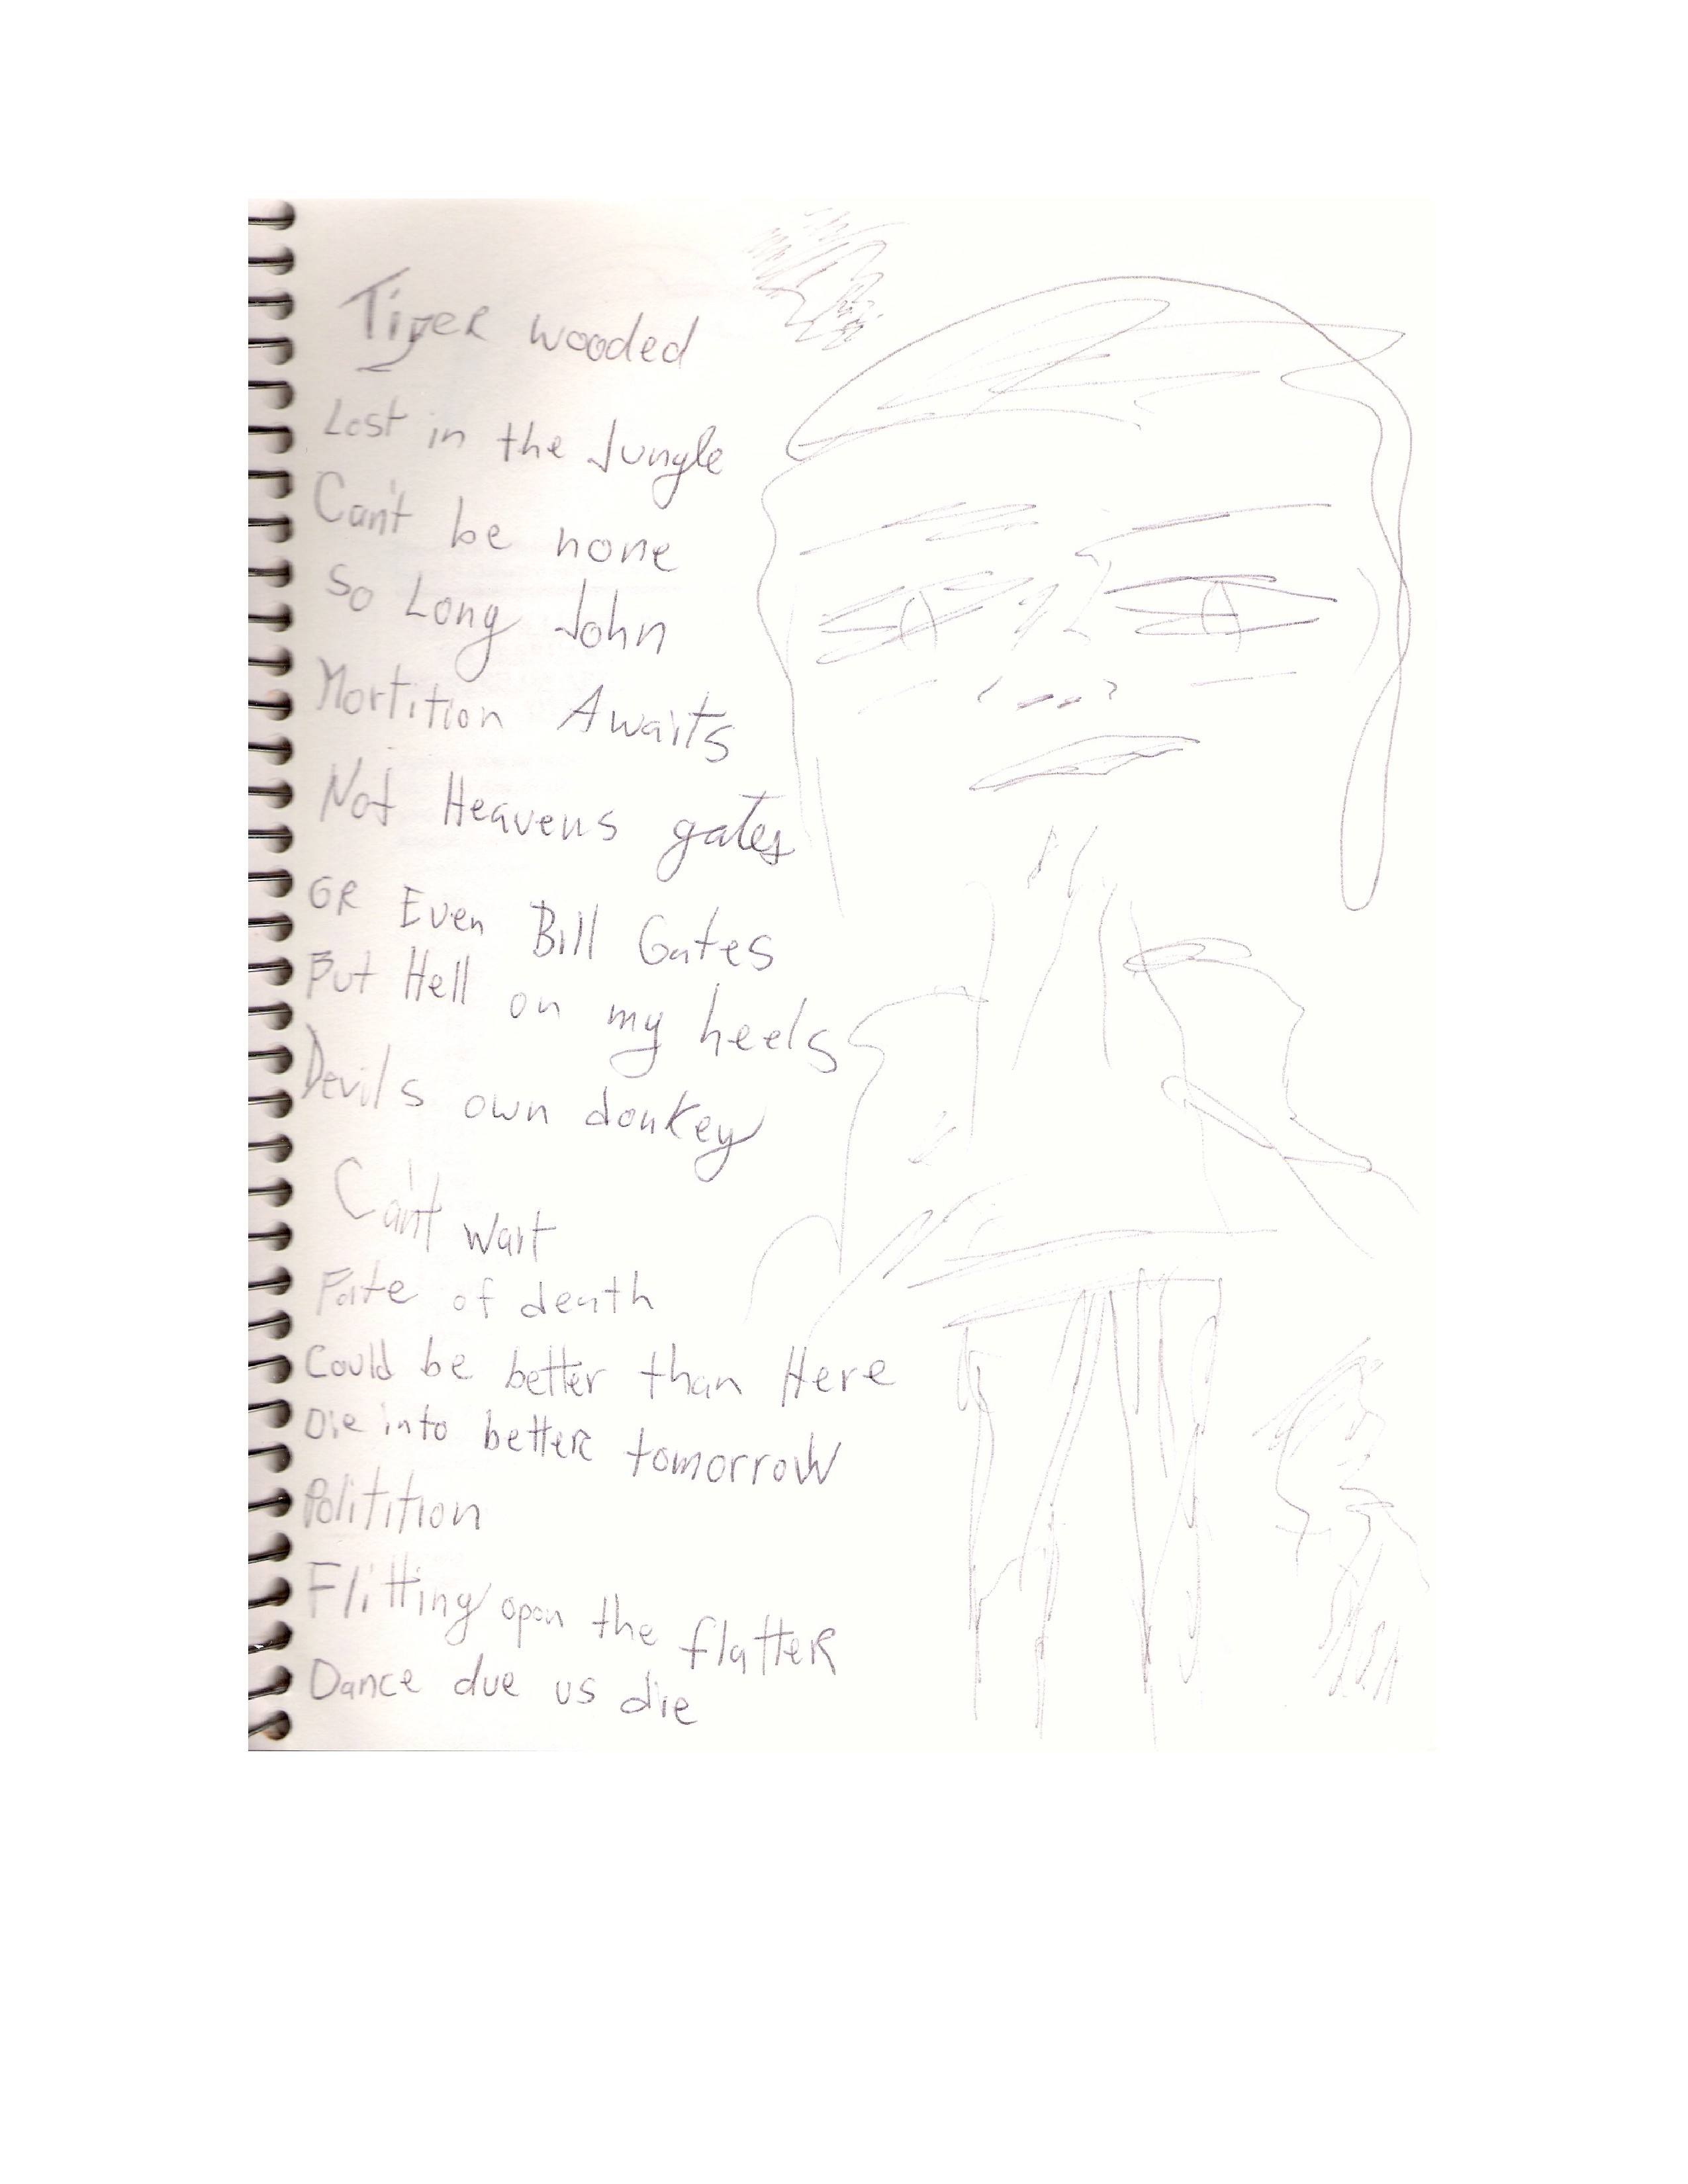 Tiger wooded
Lost in the Jungle
Can't be none
So Long John
Mortition Awaits
Not Heavens gates
OR Even Bill Gates
But Hell on my heels
Devils own donkey
Can't wait
Fate of death
Could be better than Here
Die into better tomorrow
Politition
Flitting opon the flatter
Dance due us die